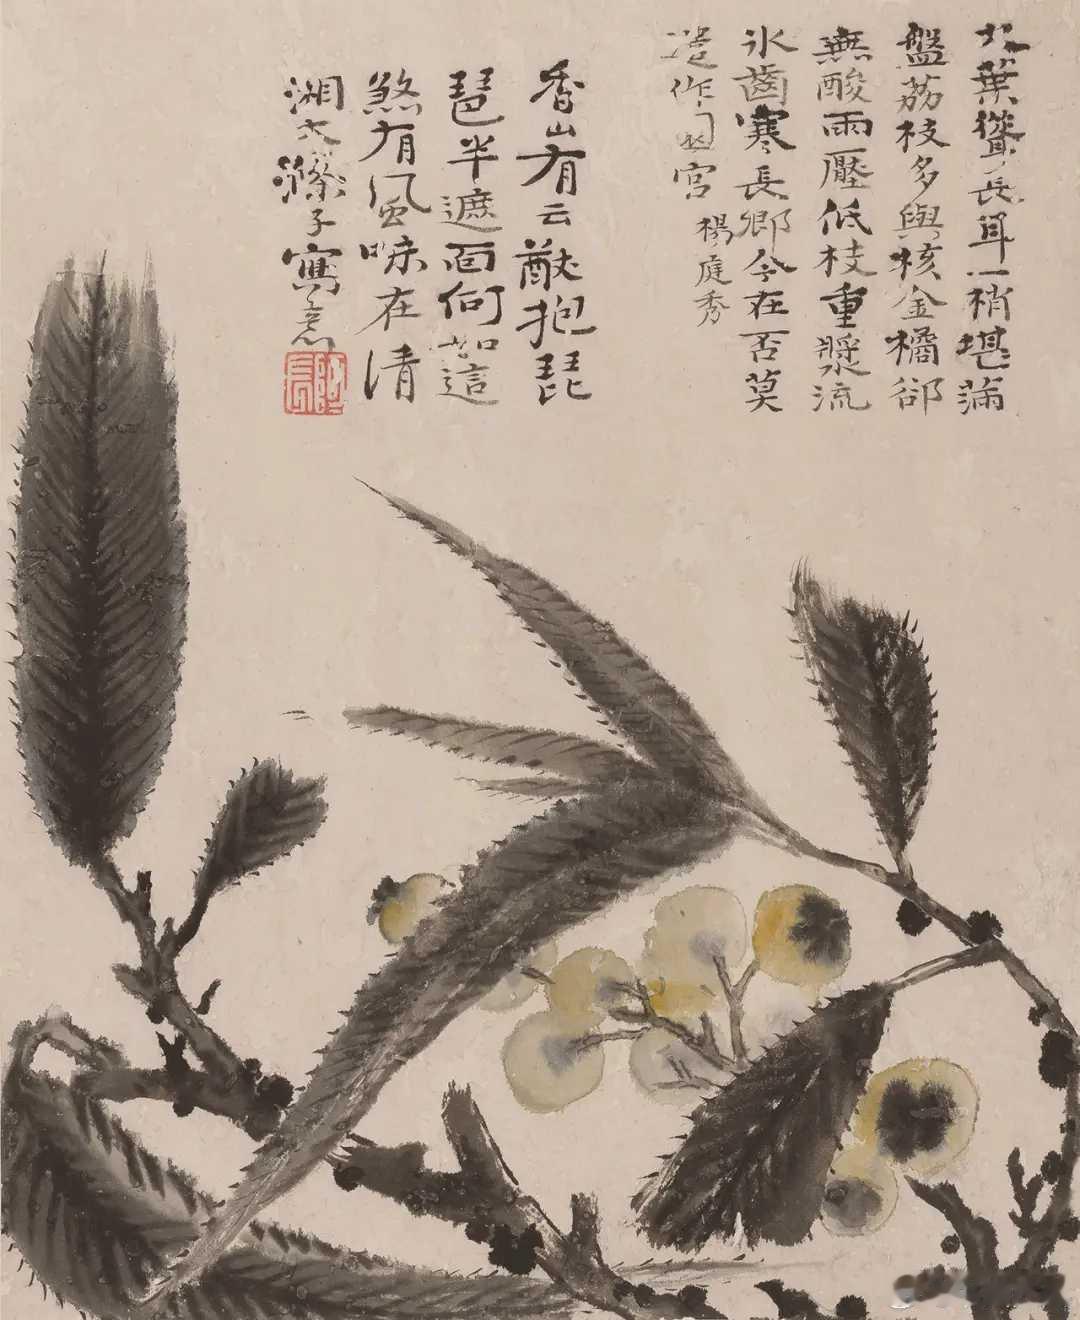 大葉聳長耳一梢堪滿
盤荔枝多與核金橘卻
無酸雨壓低枝重漿流
氷齒寒長卿今在否莫
遣作園官 楊庭秀
香山有云猷抱琵
琶半遮面何如這
煞有風味在清
湘大滌子寫意
阿長